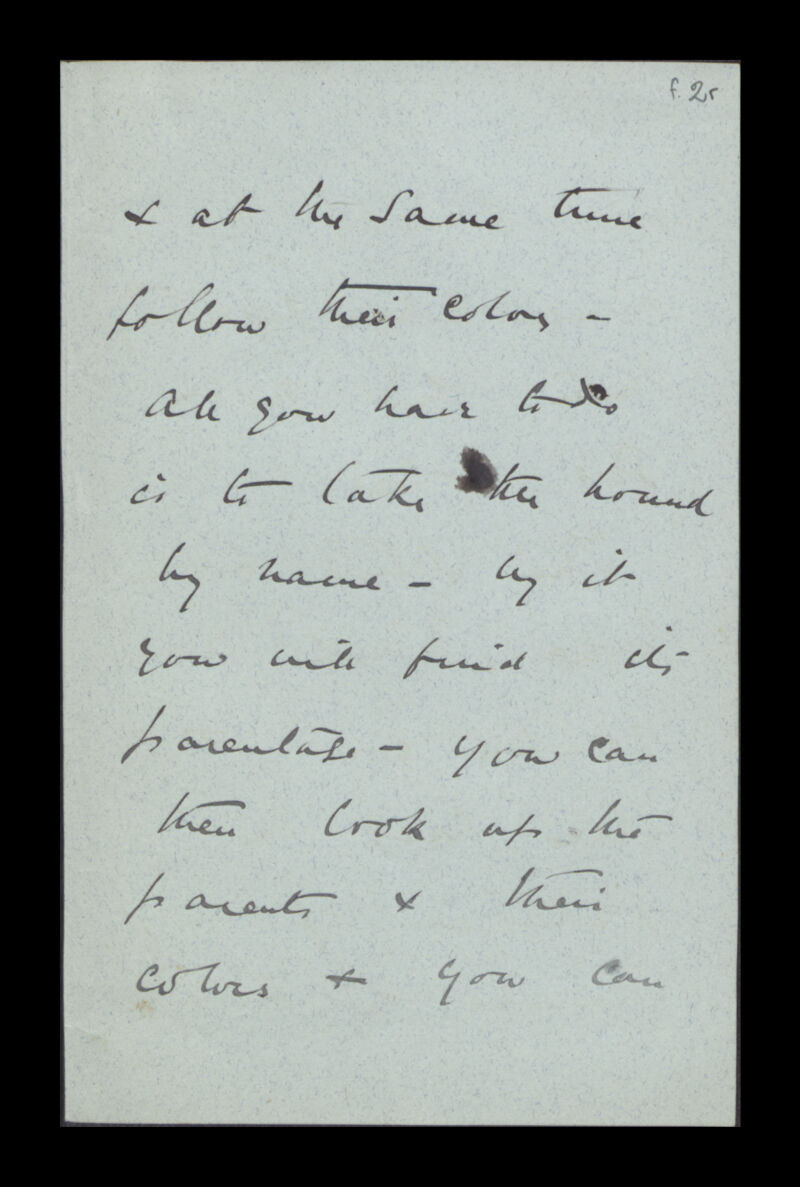 f. 2r
& at the same time
follow their colors -
All you have to do
is to take the hound
by name - by it
you will find its
parentage - you can
then look up the
parents & their
colors & you can